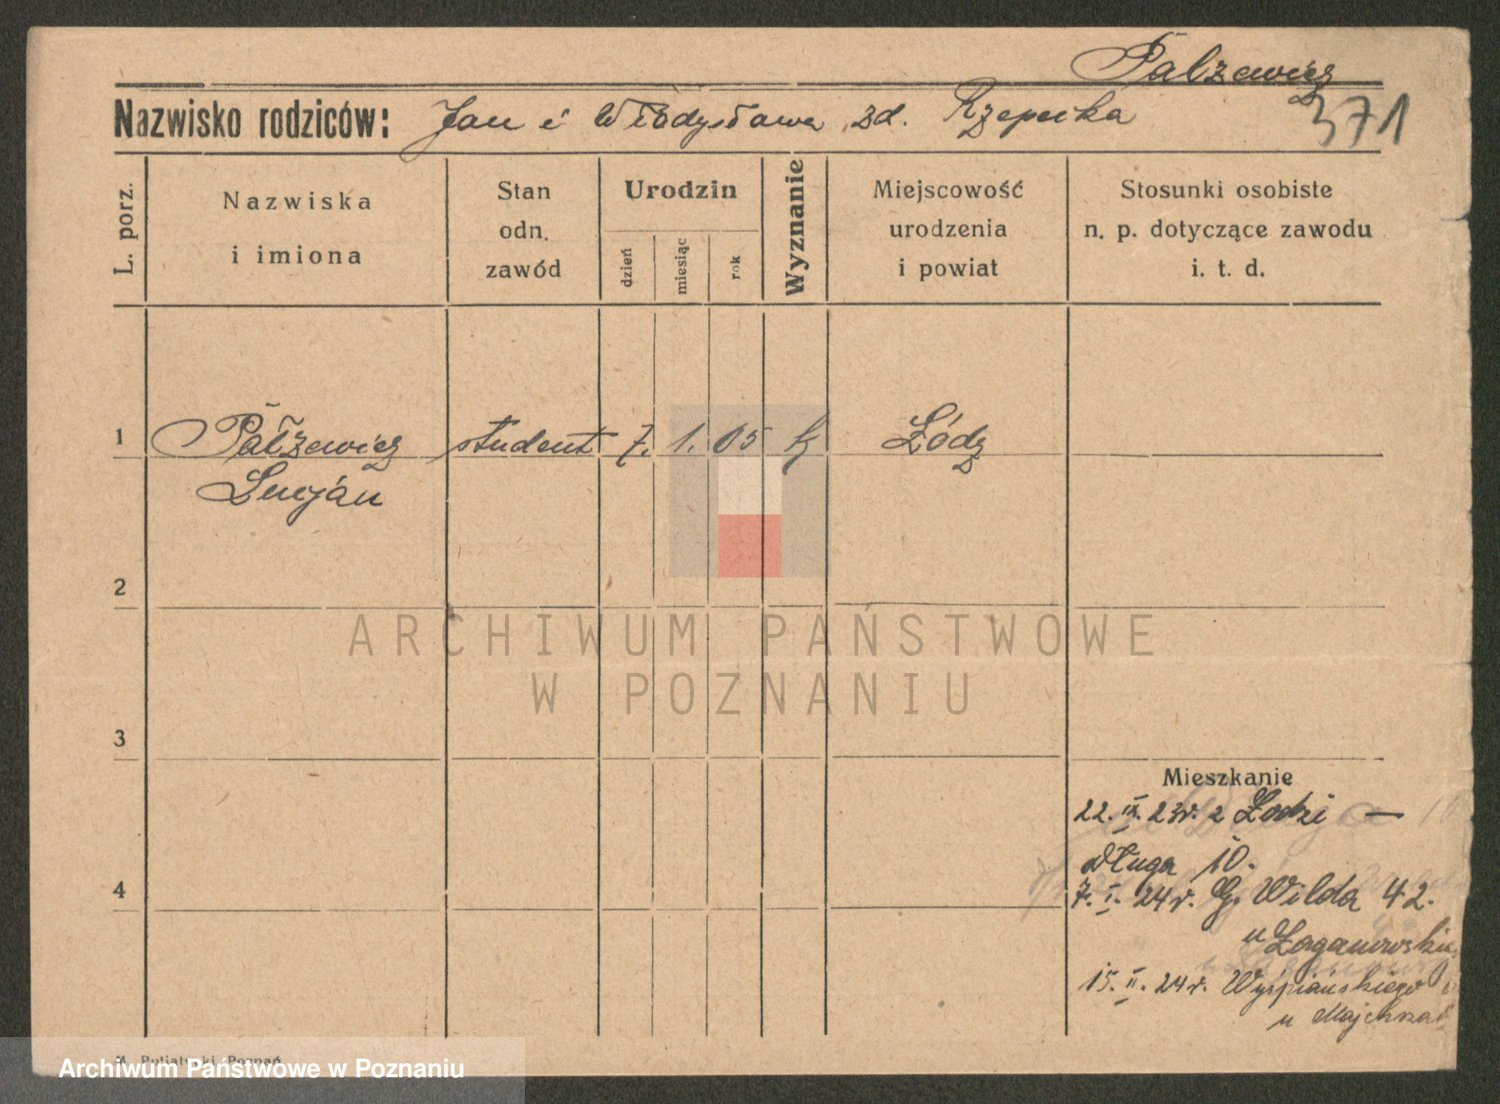 Palzewicz
Nazwisko rodziców: Jan i Władysława zd. Rzepecka
371
L. porz.
Nazwiska
i imiona
Stan
odn.
zawód
Urodzin
dzień
miesiąc
rok
Wyznanie
Miejscowość
urodzenia
i powiat
Stosunki osobiste
n. p. dotyczące zawodu
i. t. d.
1 Palzewicz student 7. 1. 05 k Łódź
Lucjan
2
3
4
Mieszkanie
22.IX.23r. z Łodzi —
Długa 10.
7.I.24r. G. Wilda 42.
u
15.II.24r. Wyspiańskiego
u
ARCHIWUM PAŃSTWOWE
W POZNANIU
Poznań
Archiwum Państwowe w Poznaniu